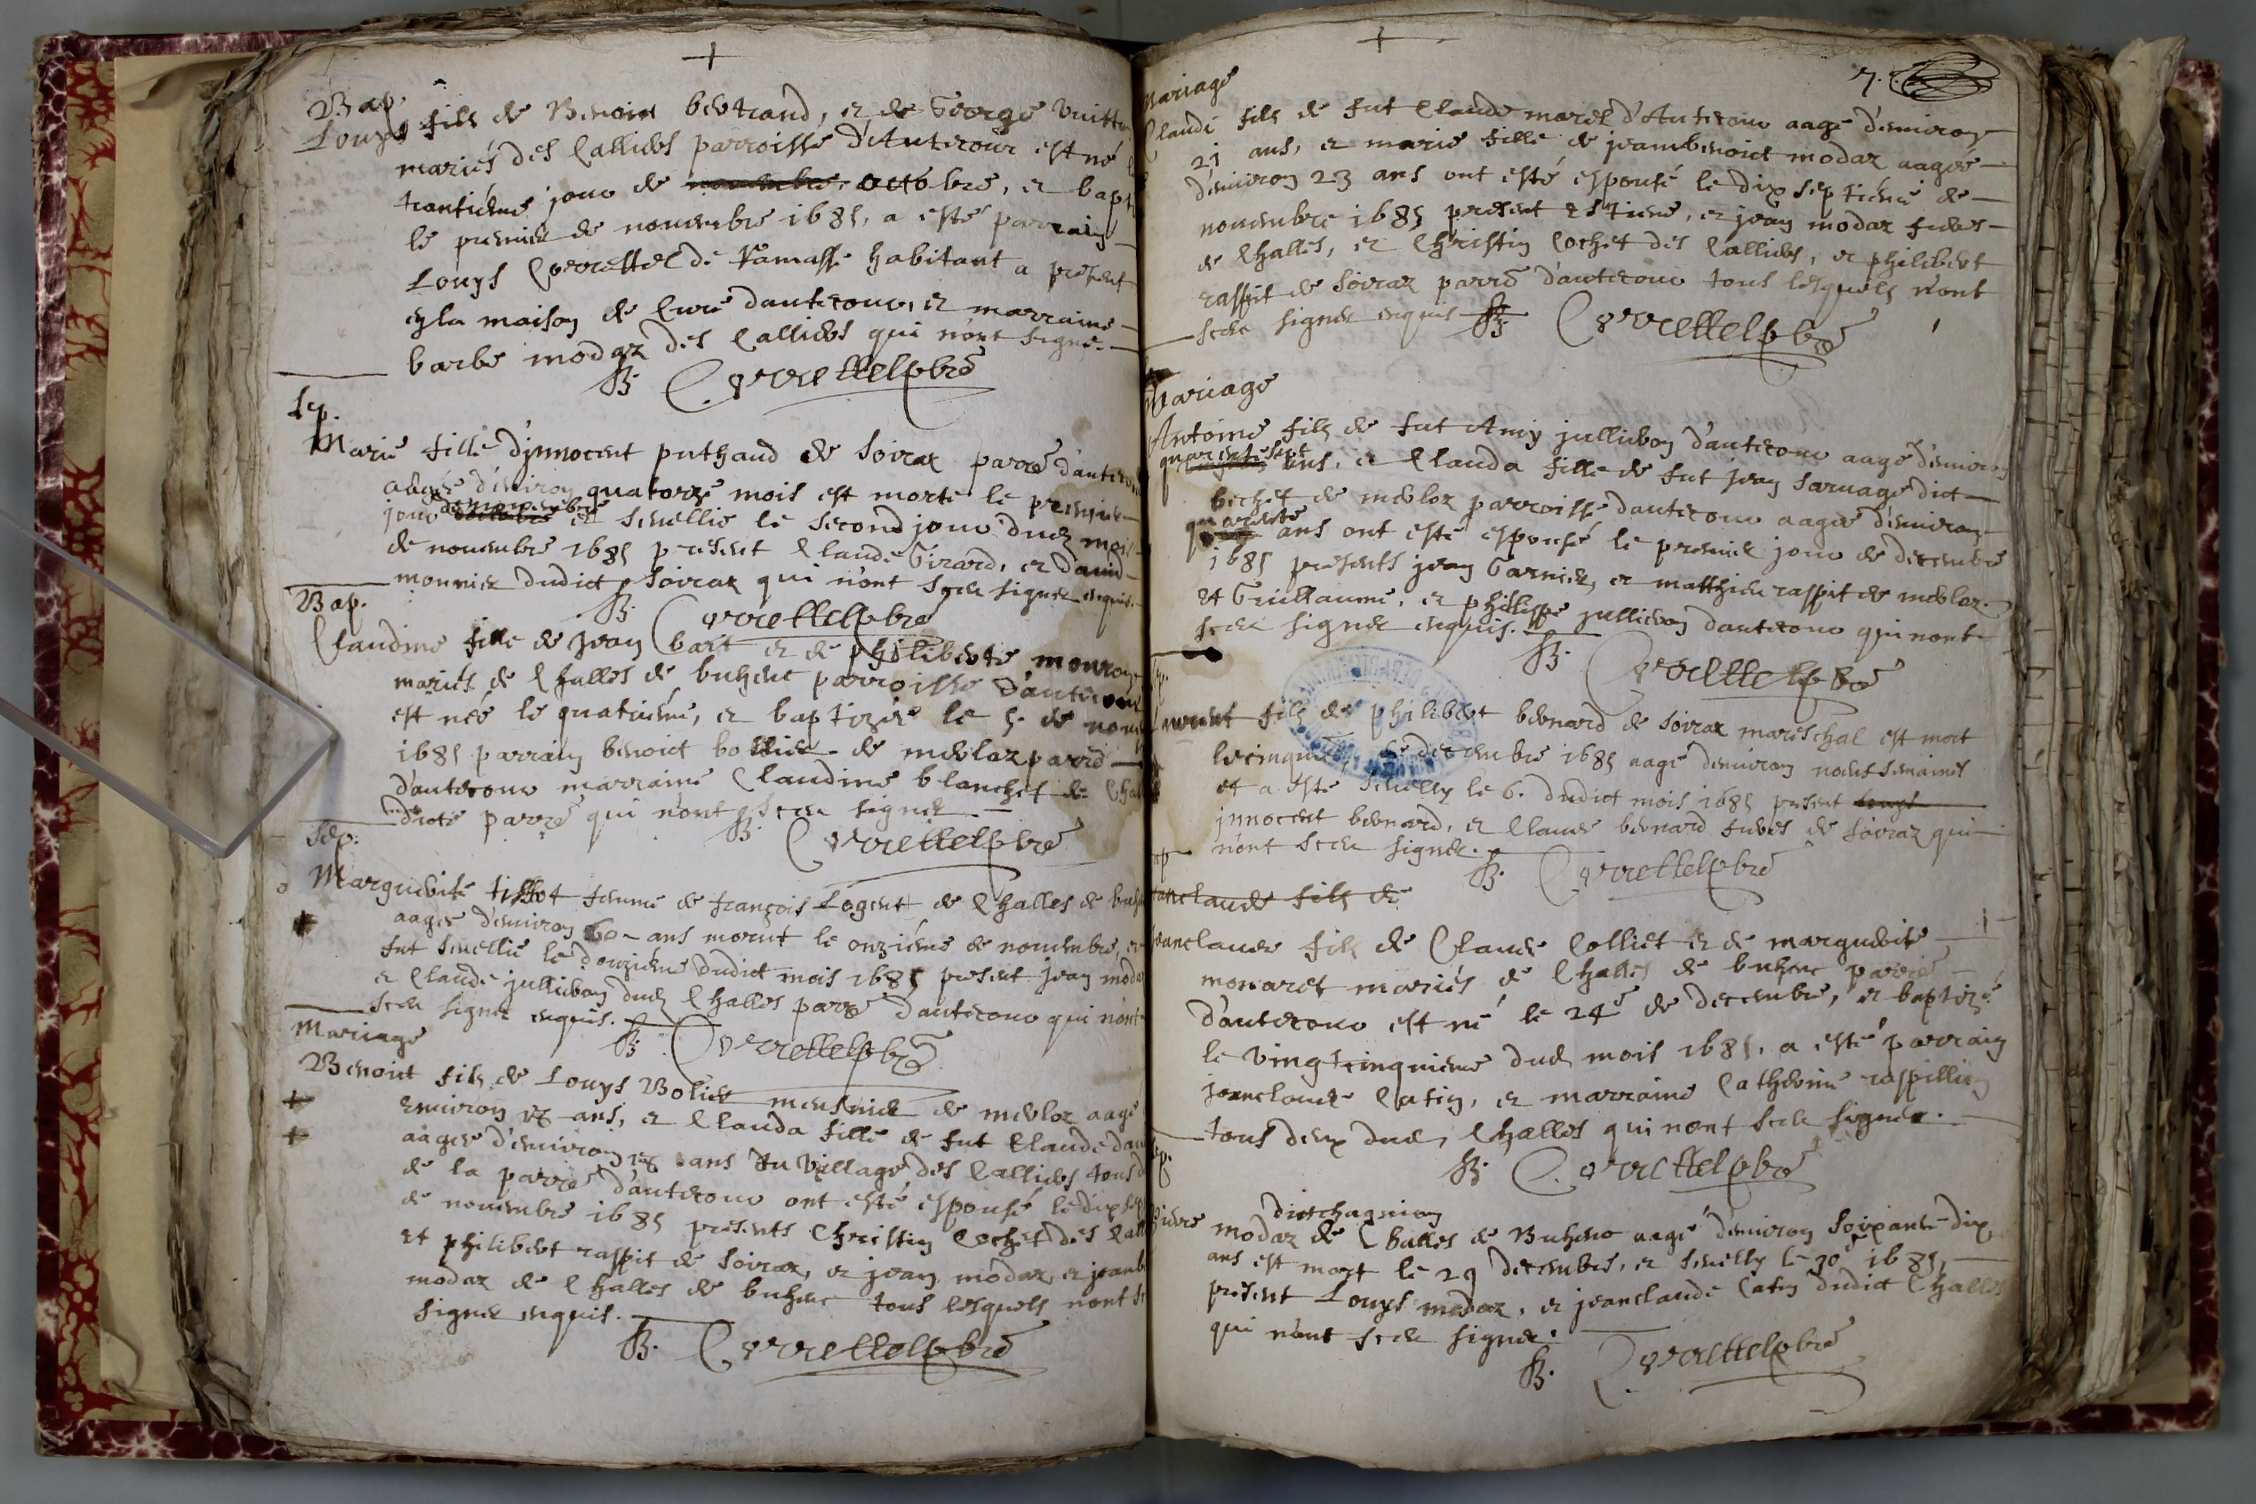 Bap.
Louys fils de Benoist bertrand, et de George
mariés des Calliers parroisse d'Antecour est né
trantiéme jour de novembre octobre, et bapti
le premier de novembre 1685, a esté parrain
Louys Cerrettel de Ramasse habitant a present
en la maison de Cure dantecour, et marraine
barbe modaz des Calliers qui n'ont signé.
B. Cerrettel pbre
Sep.
Marie fille d'jnnocent puthaud de Soiraz parre d'antecour
aagée d'environ quatorze mois est morte le premier
jour de novembre et sevellie le second jour dud mois
de novembre 1685 present Claude Girard, et David
monnier dudict Soiraz qui n'ont sceu signer enquis.
B. Cerrettel pbre
Bap.
Claudine fille de Jean bait et de philiberte mouroz
mariés de Challes de buhenc parroisse d'antecour
est née le quatriéme, et baptizée le 5. de nove
1685 parrain benoict bollier de merloz parre
d'antecour marraine Claudine blanchet de Chal
dicte parre qui n'ont sceu signer
B. Cerrettel pbre
Sep.
Marguerite tissot femme de françois Logent de Challes de buh
aagée d'environ 60 ans morut le onziéme de novembre, et
fut sevellie le douziéme dudict mois 1685 present jean moda
et Claude jullieron dud Challes parre d'antecour qui n'ont
sceu signer enquis.
B. Cerrettel pbre
Mariage
Benoict fils de Louys Bolier meusnier de merloz aagé
environ ans, et Clauda fille de fut Claude
aagée d'environ ans du village des Calliers tous d
de la parre d'antecour ont esté espousé le dixsep
de novembre 1685 presents Christin Cochet des Call
et philibert raspit de Soiraz, et jean modaz, et jeanb
modaz de Challes de buhenc tous lesquels n'ont s
signer enquis.
B. Cerrettel pbre
7.
Mariage
Claude fils de fut Claude morel d'Antecour aagé d'environ
21 ans, et marie fille de jeanbenoict modaz aagée
d'environ 23 ans ont esté espousé le dix septiéme de
novembre 1685 present Estiene, et jean modaz freres
de Challes, et Christin Cochet des Calliers, et philibert
raspit de Soiraz parre d'antecour tous lesquels n'ont
sceu signer enquis B. Cerrettel pbre
Mariage
Antoine fils de fut Amy jullieron d'antecour aagé d'environ
quarante sept ans, et Clauda fille de fut jean Sarvage dict
bechet de merloz parroisse dantecour aagée d'environ
quarente ans ont esté espousé le premier jour de decembre
1685 presents jean Garnier, et matthieu raspit de merloz.
et Guillaume, et philippe jullieron dantecour qui n'ont
sceu signer enquis.
B. Cerrettel pbre
fils de philibert bernard de Soiraz mareschal est mort
le cinquié de decembre 1685 aagé d'environ neuf semaines
et a esté sevelly le 6. dudict mois 1685 present Louys
jnnocent bernard, et Claude bernard freres de Soiraz qui
n'ont sceu signer.
B. Cerrettel pbre
Jeanclaude fils de
Jeanclaude fils de Claude Colliet et de marguerite
monaret mariés de Challes de buhenc parre
d'antecour est né le 24e de decembre, et baptizé
le vingtcinquiéme dud mois 1685, a esté parrain
jeanclaude Catin, et marraine Catherine raspillin
tous deux dud, Challes qui n'ont sceu signer.
B. Cerrettel pbre
Sep.
dict chagnion
Pierre modaz de Challes de Buhenc aagé d'environ soixante dix
ans est mort le 29 decembre, et sevelly le 30e 1685,
present Louys modaz, et jeanclaude Catin dudict Challes
qui n'ont sceu signer.
B. Cerrettel pbre